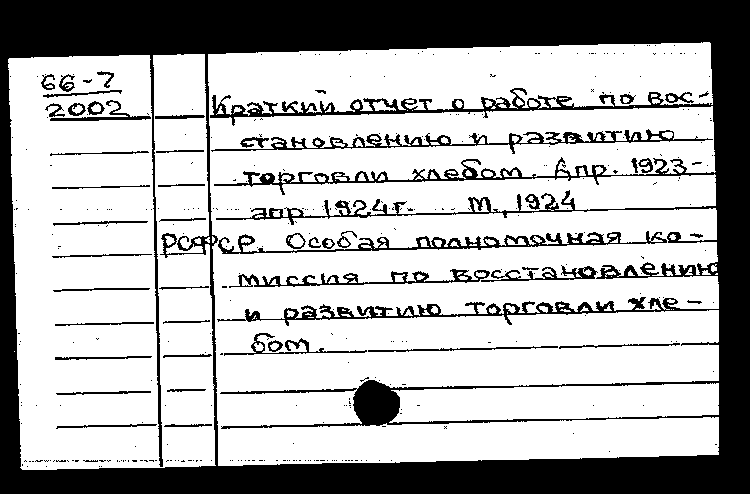 66-7
2002
Краткий отчет о работе по вос-
становлению и развитию
торговли хлебом. Апр. 1923-
апр 1924г. М., 1924
РСФСР. Особая полномочная ко-
миссия по восстановлению
и развитию торговли хле-
бом.